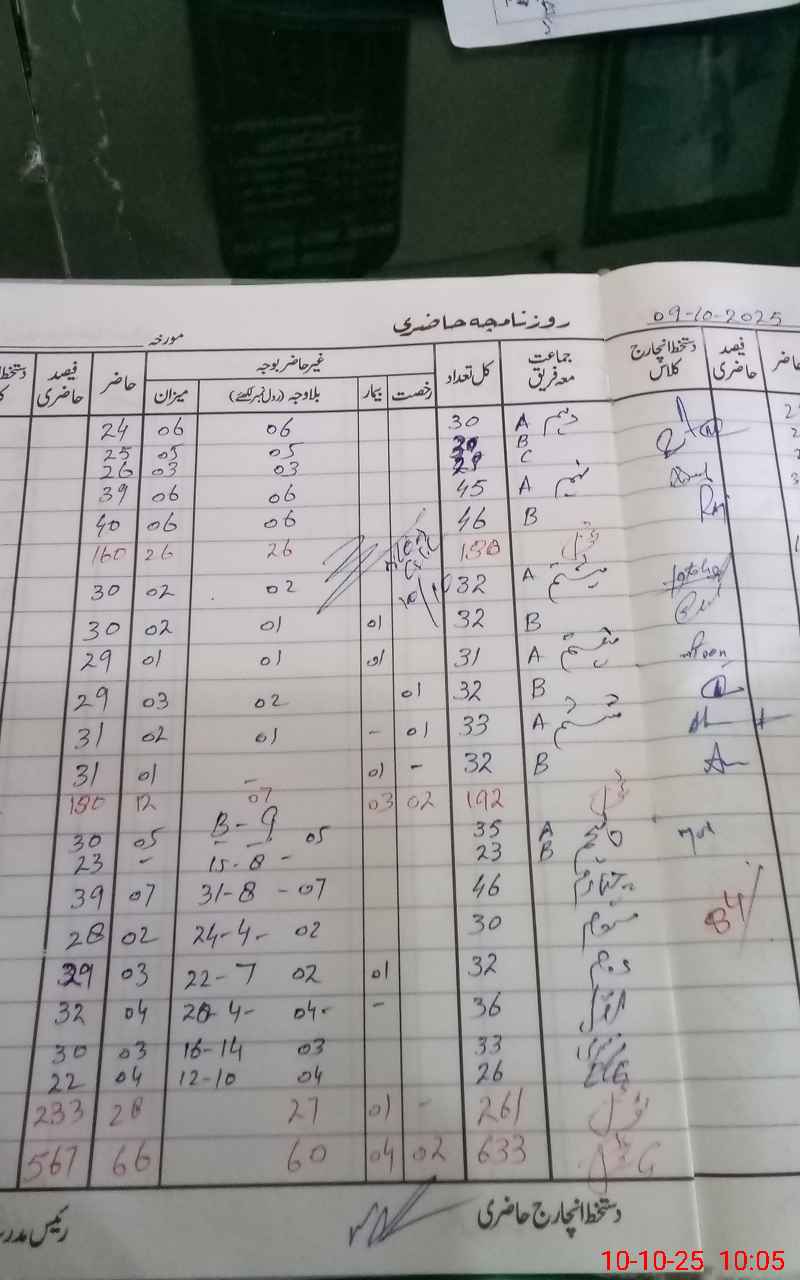 09-10-2025
روزنامچہ حاضری
مورخہ
حاضر فیصد حاضری دستخط انچارج کلاس جماعت معہ فریق کل تعداد غیر حاضر بوجہ حاضر فیصد حاضری
رخصت بیمار بلاوجہ (رول نمبر لکھئے) میزان
دہم A 30 06 06 24
B 30 05 05 25
C 29 03 03 26
نہم A 45 06 06 39
B 46 06 06 40
ٹوٹل 26 26 160
ہشتم A 32 02 02 30
B 32 01 01 02 30
ہفتم A 31 01 01 29
B 32 01 02 03 29
ششم A 33 01 - 01 02 31
B 32 - 01 - 01 31
ٹوٹل 192 02 03 07 12 180
پنجم A 35 B-9 05 05 30
B 23 15-8 - - 23
چہارم 46 31-8 - 07 07 39
سوم 30 24-4- 02 02 28
دوم 32 01 22-7 02 03 29
اول 36 - 28-4- 04- 04 32
33 16-14 03 03 30
ECE 26 12-10 04 04 22
ٹوٹل 261 - 01 27 28 233
G ٹوٹل 633 02 04 60 66 567
84
دستخط انچارج حاضری
10-10-25 10:05